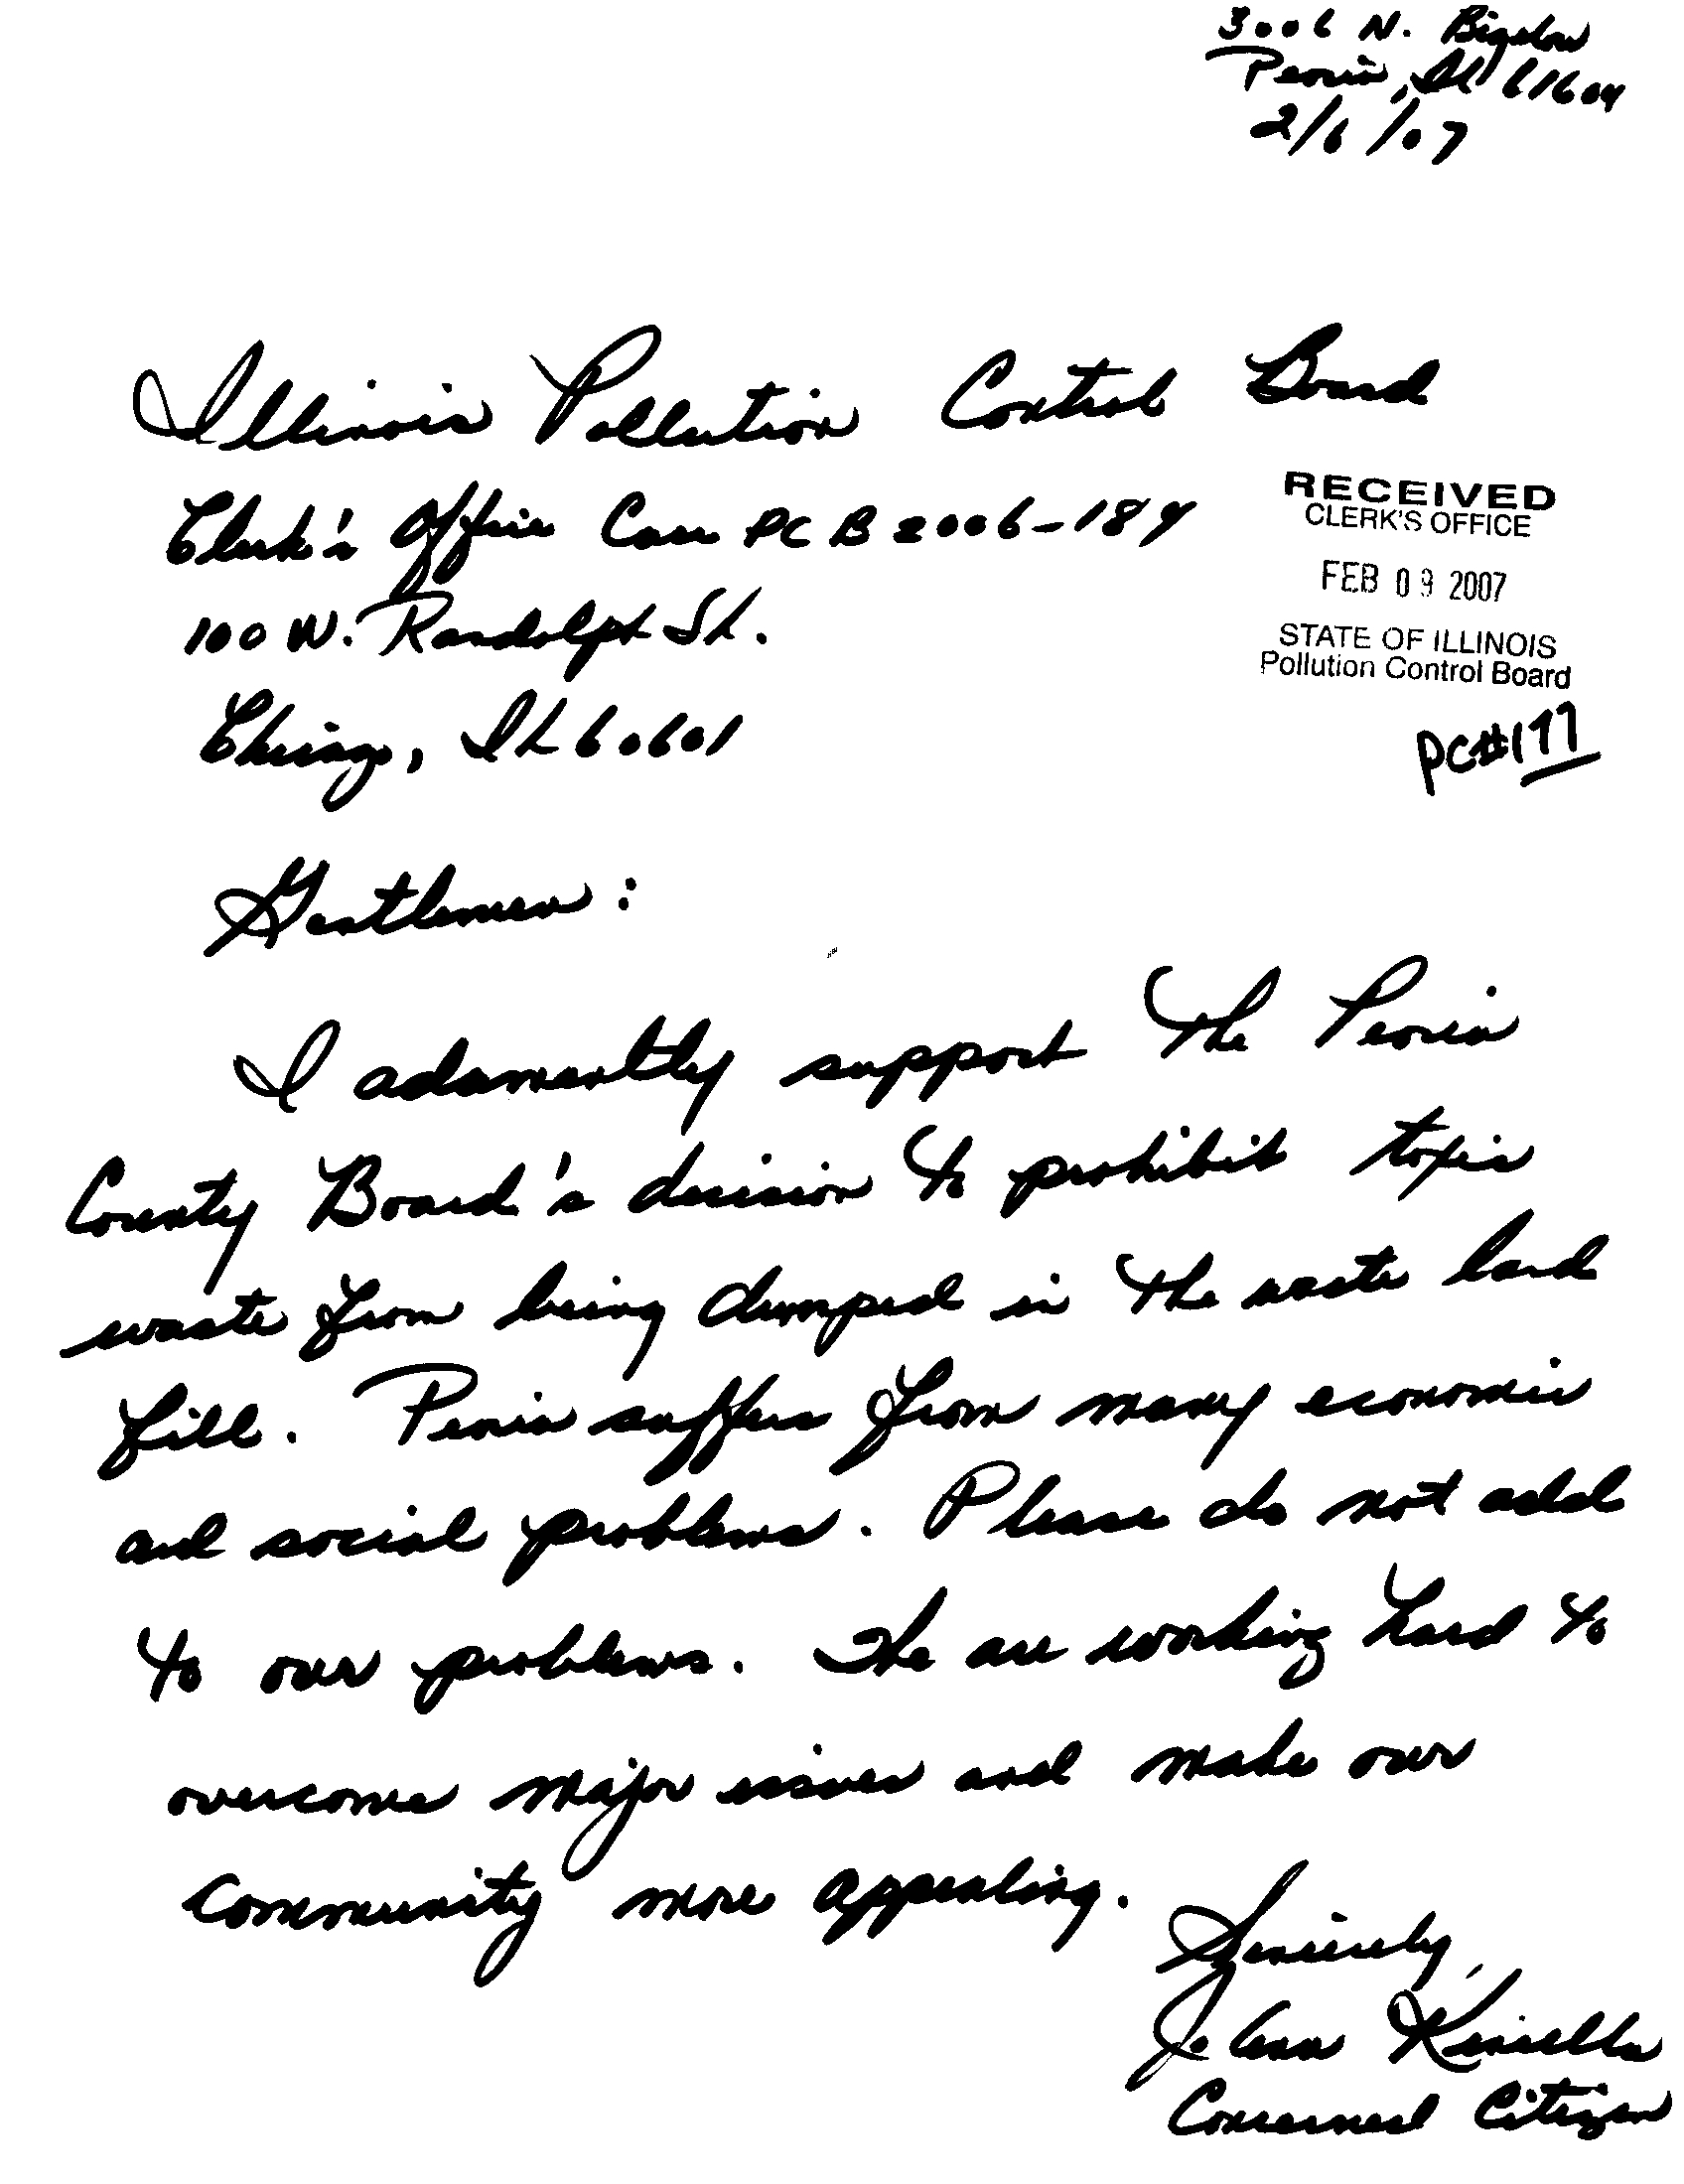 3006 N. Bigelow
Peoria, Il 61604
2/6/07
Illinois Pollution Control Board
Clerk's Office Case PCB 2006-184
100 W. Randolph St.
Chicago, IL 60601
RECEIVED
CLERK'S OFFICE
FEB 09 2007
STATE OF ILLINOIS
Pollution Control Board
PC#177
Gentlemen:
I adamantly support the Peoria
County Board's decision to prohibit toxic
waste from being dumped in the waste land
fill. Peoria suffers from many economic
and social problems. Please do not add
to our problems. The are working hard to
overcome major issues and make our
community more appealing.
Sincerely,
Jo Ann Kinsella
Concerned Citizen